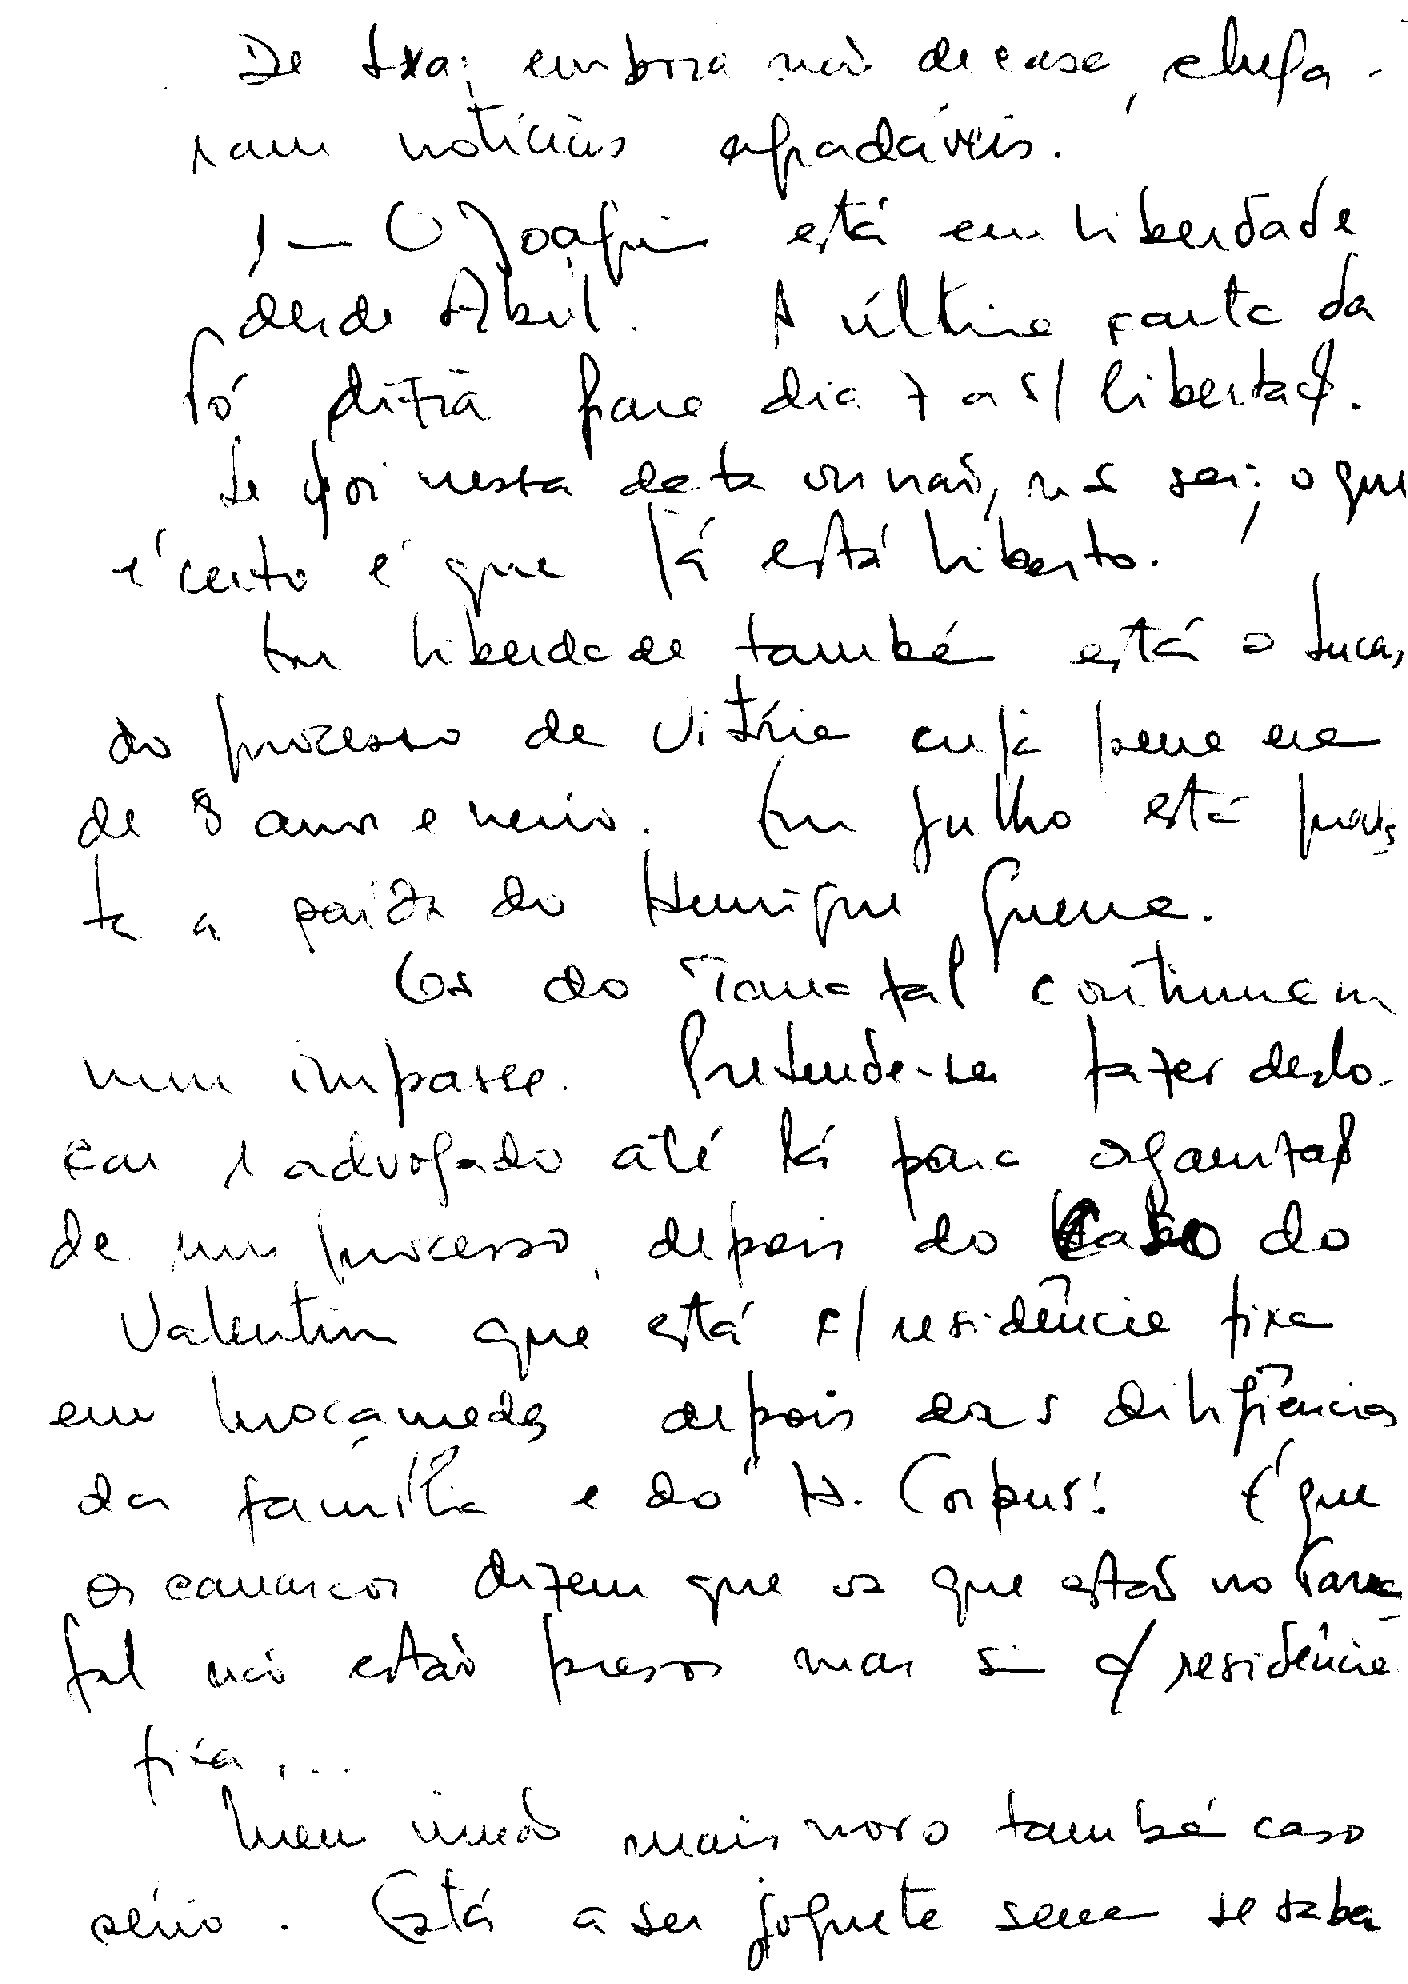 De Lxa; embora não de casa, chega-
ram notícias agradáveis.
1 — O Joaquim está em liberdade
desde Abril. A última carta da
Tó dizia para dia 7 a s/ libertaç.
Se foi nesta data ou não, não sei; o que
é certo é que já está liberto.
Em liberdade també está o Lucas,
do processo de Vitória cuja pena era
de 8 anos e meio. Em Julho está previs
ta a saída do Henrique Guerra.
Os do Tarrafal continuam
num impasse. Pretende-se fazer deslo-
car 1 advogado até lá para organizaç
de um processo, depois do caso do
Valentim que está c/ residência fixa
em Moçamedes depois das diligências
da família e do "H. Corpus". É que
os carrascos dizem que os que estão no Tarra
fal não estão presos mas sim c/ residência
fixa, ...
Meu irmão mais novo també caso
sério. Está a ser joguete sem se saber